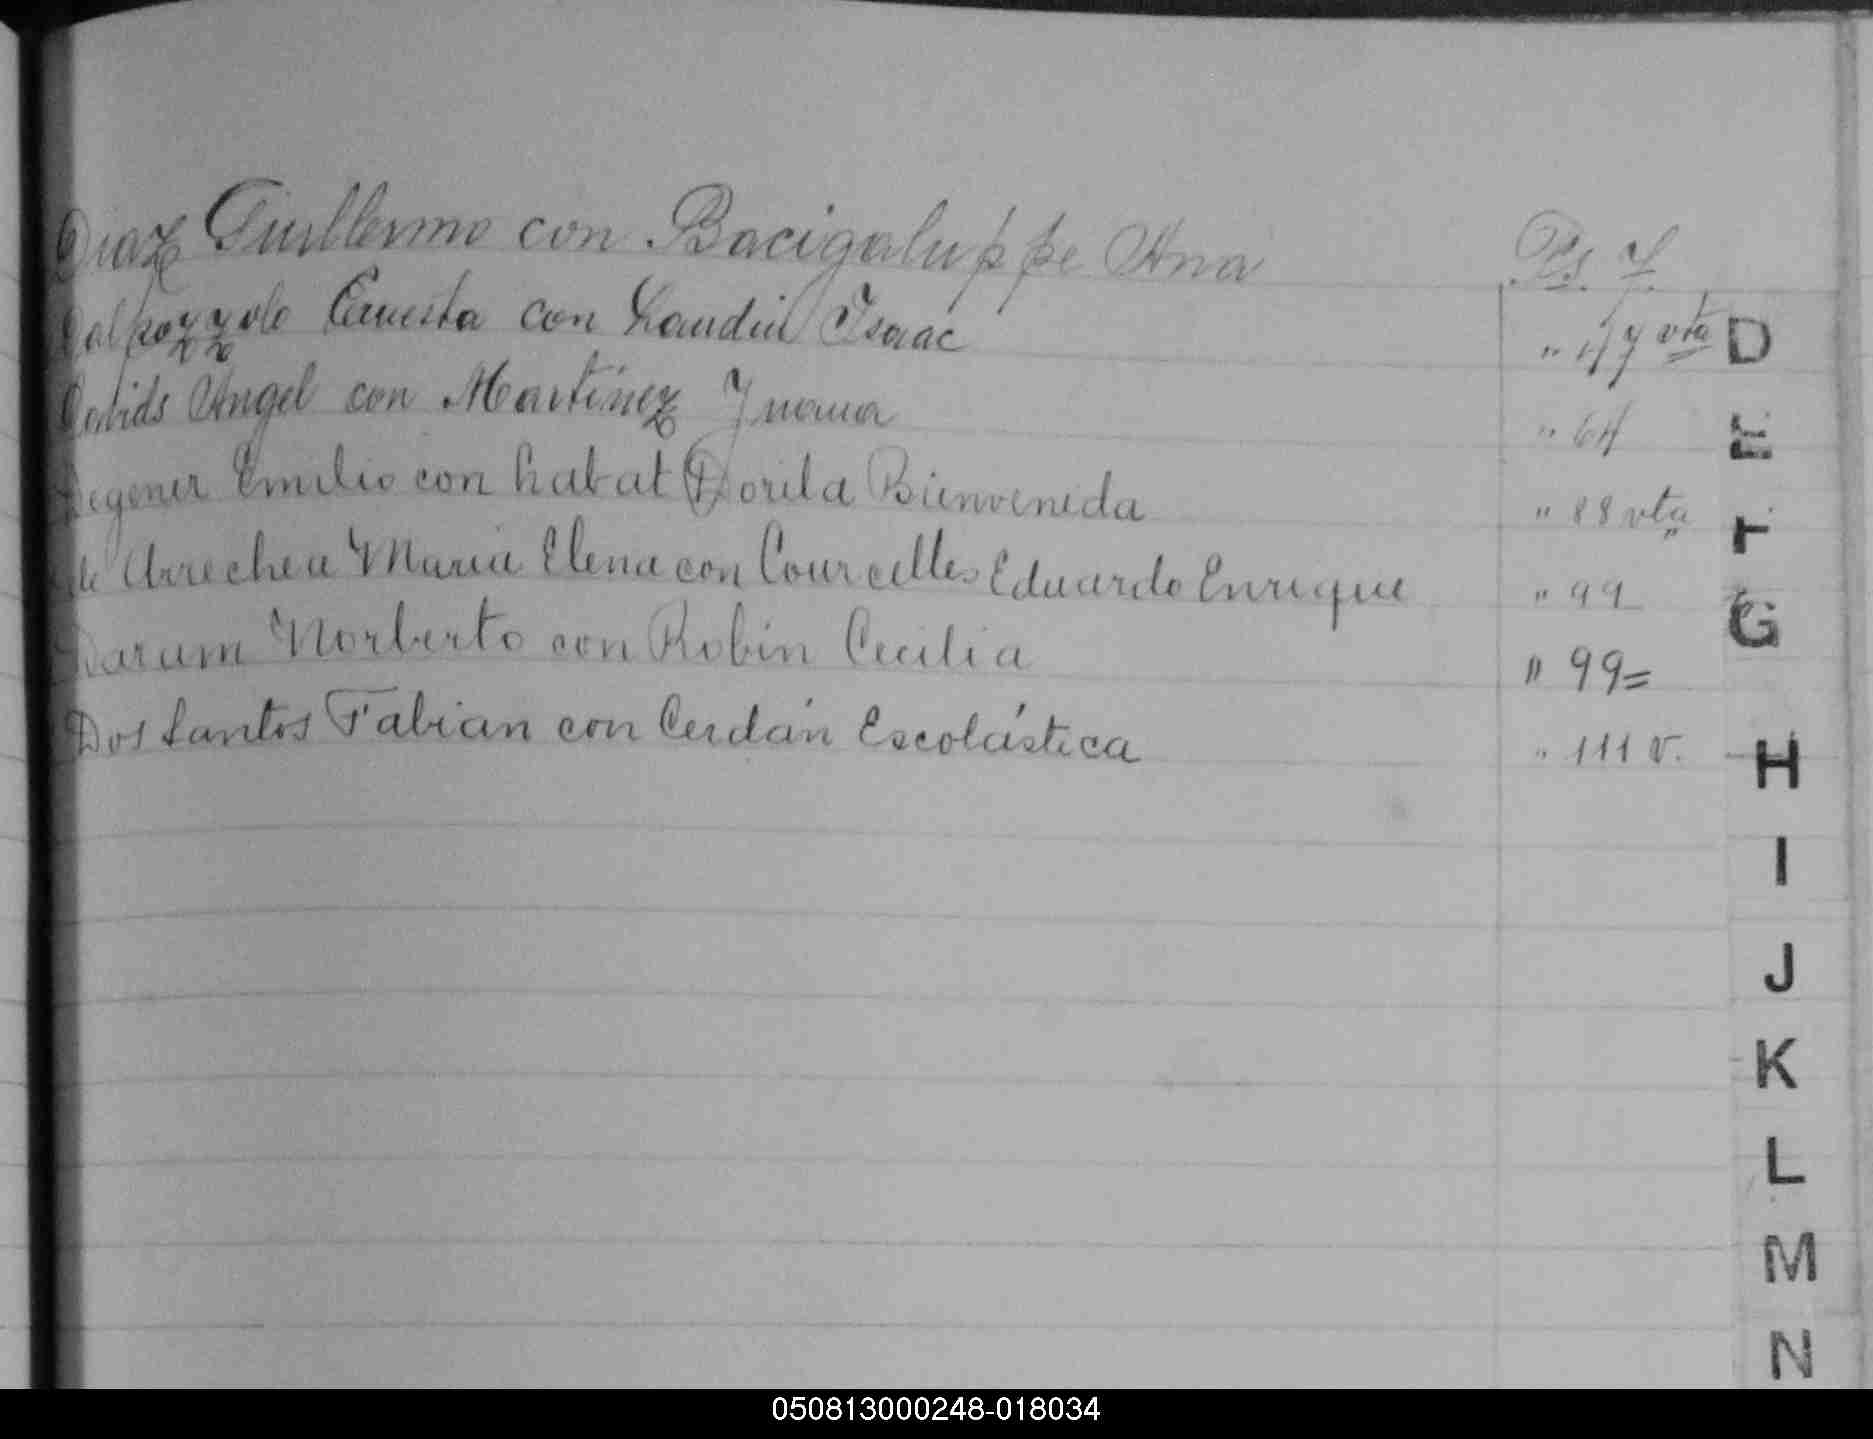 Diaz Guillermo con Bacigaluppe Ana Ps. 7.
Dal pozzolo Ernesta con Landin Isaac " 47 vta
Davids Angel con Martinez Juana " 64
Degener Emilio con Labat Dorila Bienvenida " 88 vta
de Arrechea Maria Elena con Courcelles Eduardo Enrique " 99
Darum Norberto con Robin Cecilia " 99=
Dos Santos Fabian con Cerdán Escolástica " 111 v.
D
E
F
G
H
I
J
K
L
M
N
050813000248-018034